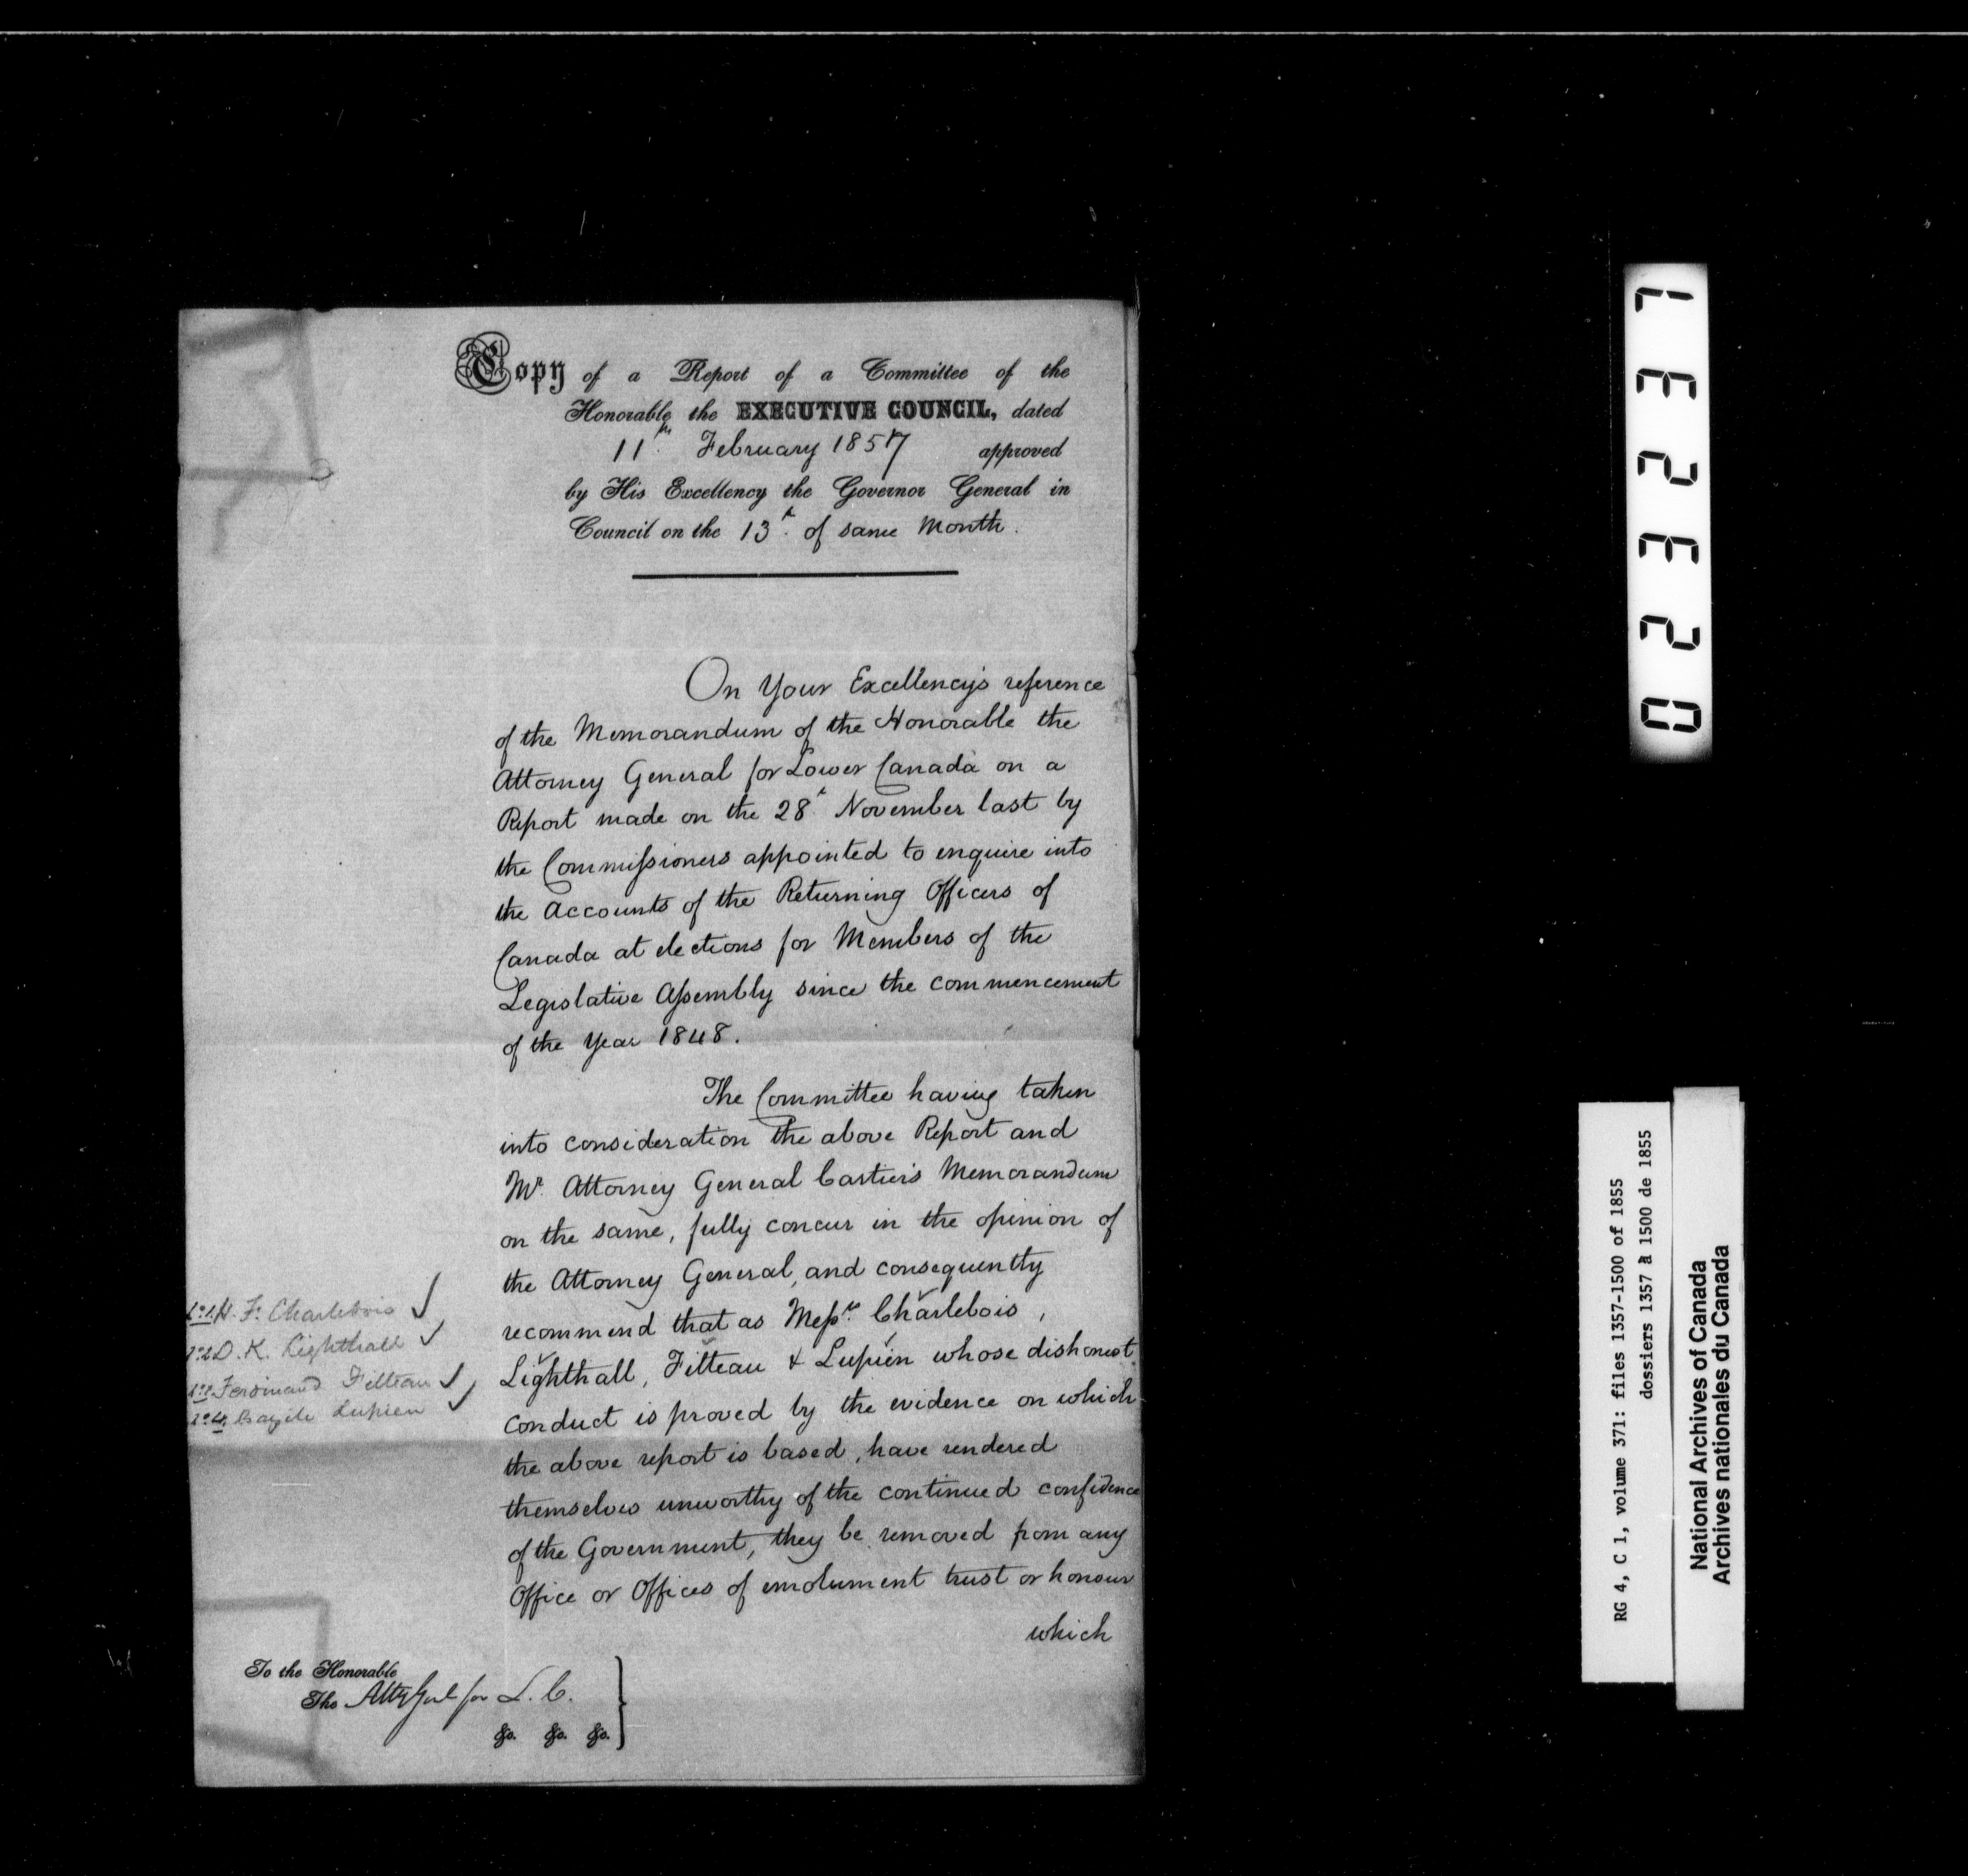 Copy of a Report of a Committee of the
Honorable the EXECUTIVE COUNCIL, dated
11th February 1857 approved
by His Excellency the Governor General in
Council on the 13th of same Month.
On Your Excellency's reference
of the Memorandum of the Honorable the
Attorney General for Lower Canada on a
Report made on the 28th November last by
the Commissioners appointed to enquire into
the Accounts of the Returning Officers of
Canada at elections for Members of the
Legislative Assembly since the commencement
of the Year 1848.
The Committee having taken
into consideration the above Report and
Mr. Attorney General Cartier's Memorandum
on the same, fully concur in the opinion of
the Attorney General, and consequently
recommend that as Messrs. Charlebois,
Lighthall, Filteau & Lupien whose dishonest
conduct is proved by the evidence on which
the above report is based, have rendered
themselves unworthy of the continued confidence
of the Government, they be removed from any
Office or Offices of emolument trust or honour
which
H. F. Charlebois ✓
D. K. Lighthall ✓
Ferdinand Filteau ✓
Lupien ✓
To the Honorable
The Atty Genl for L. C.
&c. &c. &c.
023237
RG 4, C 1, volume 371: files 1357-1500 of 1855
dossiers 1357 à 1500 de 1855
National Archives of Canada
Archives nationales du Canada